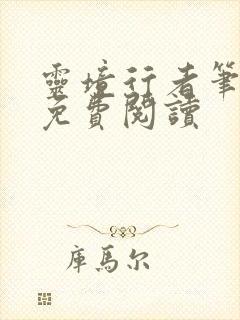 靈境行者筆
免費閱讀
庫馬尔